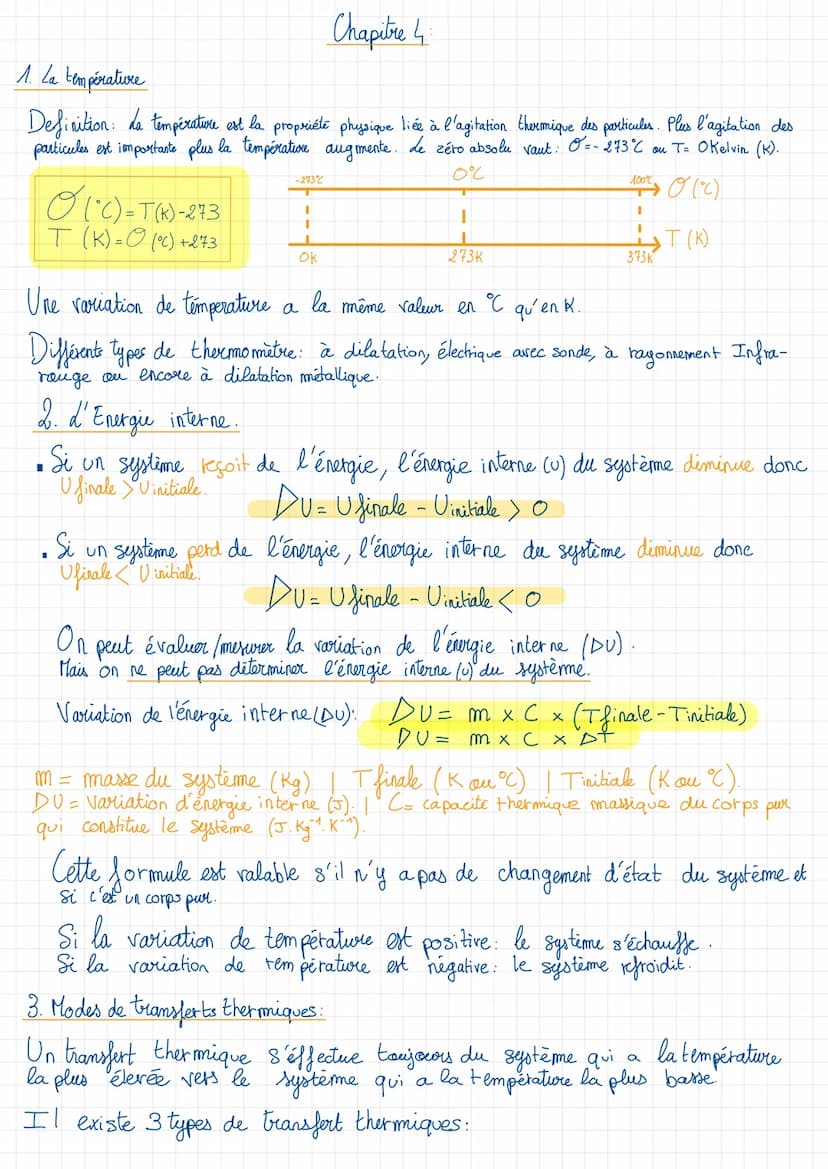 Chapitre 4:
1. La température
Definition: La température est la propriété physique liée à l'agitation thermique des particules. Plus l'agitation des
particules est importante plus la température augmente. Le zéro absolu vaut: Θ=-273°C ou T= 0Kelvin (K).
-273°C 0°C 100°C Θ (°C)
Θ (°C) = T(K)-273
T (K) = Θ (°C) +273
T (K)
0K 273K 373K
Une variation de température a la même valeur en °C qu'en K.
Différents types de thermomètre: à dilatation, électrique avec sonde, à rayonnement Infra-
rouge ou encore à dilatation métallique.
2. L'Energie interne.
▪ Si un système reçoit de l'énergie, l'énergie interne (U) du système diminue donc
U finale > U initiale.
DU = U finale - U initiale > 0
▪ Si un système perd de l'énergie, l'énergie interne du système diminue donc
U finale < U initiale.
DU = U finale - U initiale < 0
On peut évaluer/mesurer la variation de l'énergie interne (DU).
Mais on ne peut pas déterminer l'énergie interne (U) du système.
Variation de l'énergie interne (DU): DU = m x C x (T finale - T initiale)
DU = m x C x DT
m = masse du système (Kg) | T finale (K ou °C) | T initiale (K ou °C).
DU = Variation d'énergie interne (J). | C = capacité thermique massique du corps pur
qui constitue le système (J.Kg⁻¹.K⁻¹).
Cette formule est valable s'il n'y a pas de changement d'état du système et
si c'est un corps pur.
Si la variation de température est positive: le système s'échauffe.
Si la variation de température est négative: le système refroidit.
3. Modes de transferts thermiques:
Un transfert thermique s'éffectue toujours du système qui a la température
la plus élevée vers le système qui a la température la plus basse.
Il existe 3 types de transfert thermiques: